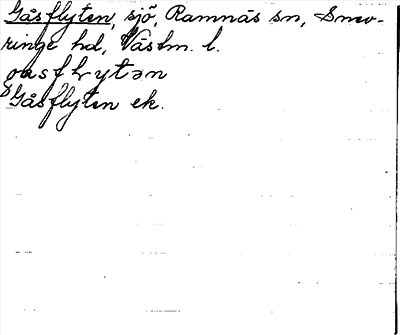 Gåsflyten, sjö, Ramnäs sn, Snev-
ringe hd, Västm. l.
gåsflytən
Gåsflyten ek.